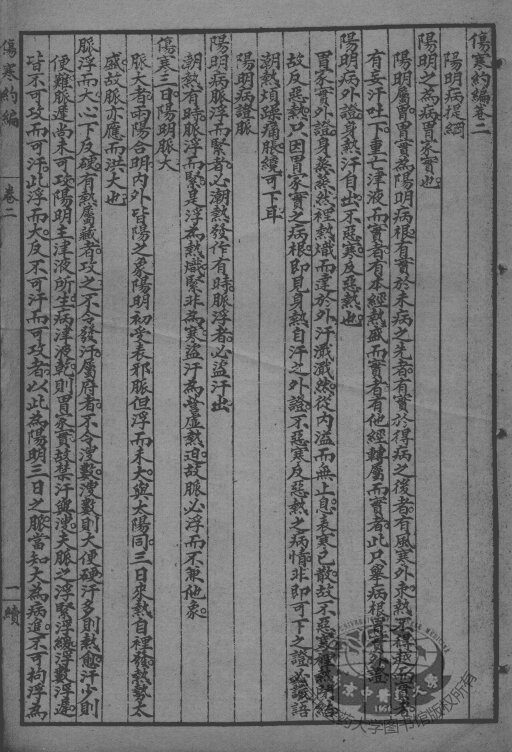 傷寒約編卷二
陽明病提綱
陽明之為病胃家實也
陽明屬胃實為陽明病根有實於未病之先者有實於得病之後者有風寒外束熱不得越而實者
有妄汗吐下重亡津液而實者有本經熱盛而實者有他經轉屬而實者此只舉病根胃實
陽明病外證身熱汗自出不惡寒反惡熱也
胃家實外證身熱蒸蒸然裡熱熾而達於外汗濈濈然從內溢而無止息表寒已散故不惡寒裡熱閉結
故反惡熱只因胃家實之病根即見身熱自汗之外證不惡寒反惡熱之病情非即可下之證必譫語
潮熱煩躁痛脹纔可下耳
陽明病證脈
陽明病脈浮而緊者必潮熱發作有時脈浮者必盜汗出
潮熱有時脈浮而緊是浮為熱熾緊非為寒盜汗為營虛熱迫故脈必浮而不兼他象
傷寒三日陽明脈大
脈大者兩陽合明內外皆陽之象陽明初受表邪脈但浮而未大與太陽同三日來熱自裡發熱勢太
盛故脈亦應而洪大也
脈浮而大心下反硬有熱屬藏者攻之不令發汗屬府者不令溲數溲數則大便硬汗多則熱愈汗少則
便難脈遲尚未可攻陽明主津液所生病津液乾則胃家實故禁汗與溲夫脈之浮緊浮緩浮數浮遲
皆不可攻而可汗此浮而大反不可汗而可攻者以此為陽明三日之脈當知大為病進不可拘浮為
傷寒約編
卷二
一
續